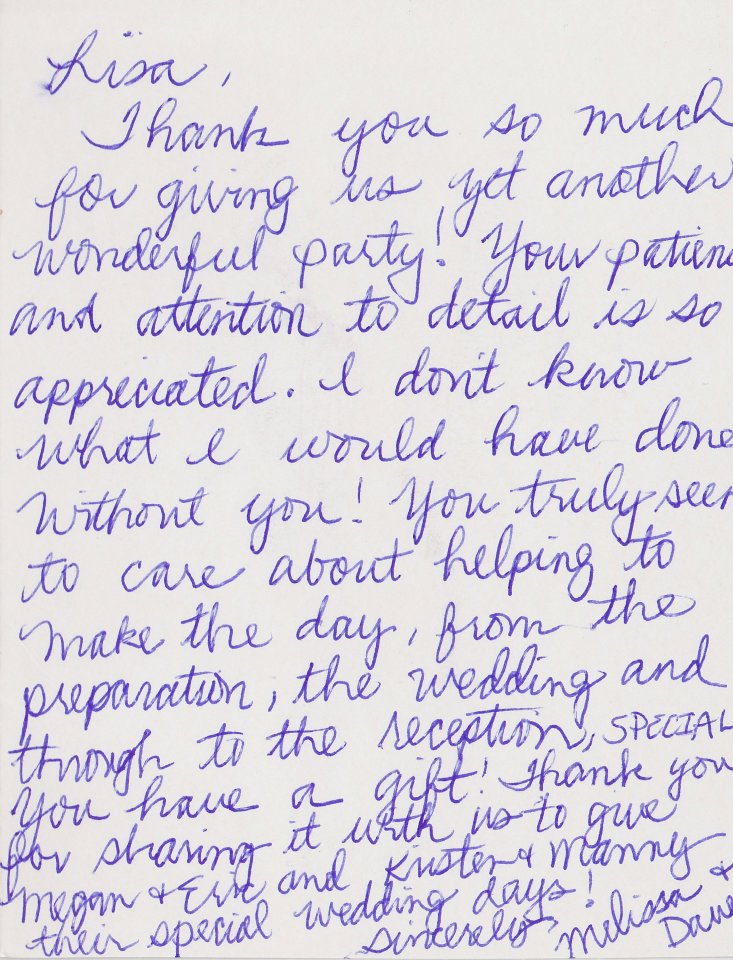 Lisa,
Thank you so much
for giving us yet another
wonderful party! Your patienc
and attention to detail is so
appreciated. I don't know
what I would have done
without you! You truly seem
to care about helping to
make the day, from the
preparation, the wedding and
through to the reception, SPECIAL
You have a gift! Thank you
for sharing it with us to give
Megan & Eric and Kristen & Manny
their special wedding days!
Sincerely, Melissa &
Dave